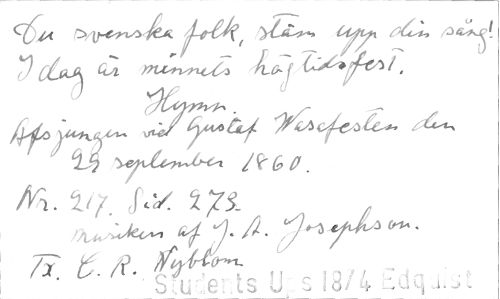 Du svenska folk, stäm upp din sång!
I dag är minnets högtidsfest.
Hymn.
Afsjungen vid Gustaf Wasafesten den
29 september 1860.
Nr. 217. Sid. 273.
musiken af J. A. Josephson.
Tx. C. R. Nyblom
Students Ups 18/4 Edquist